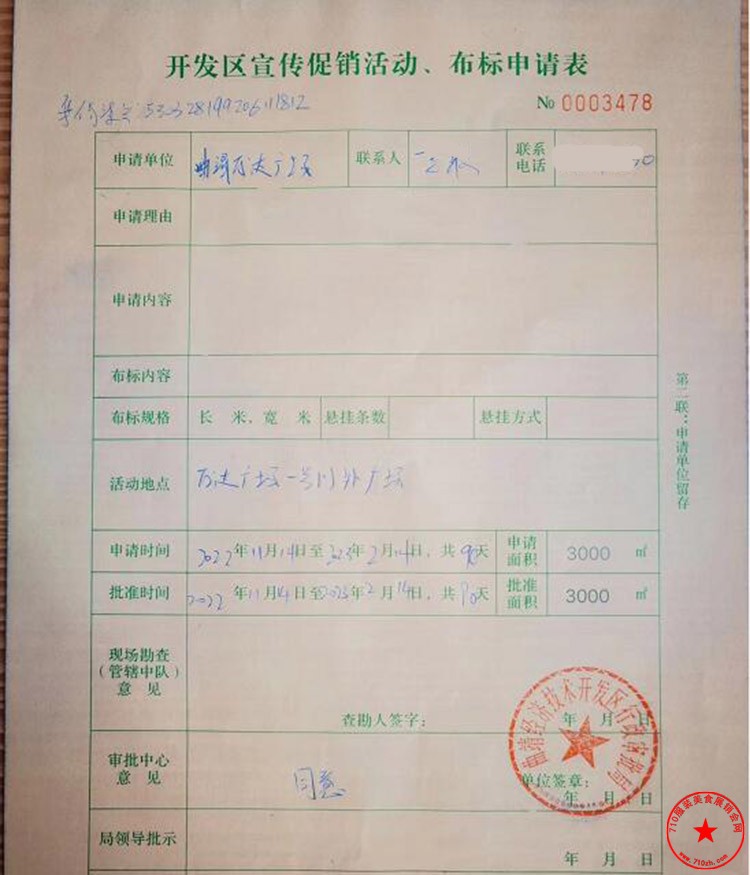 开发区宣传促销活动、布标申请表
530328199206111812
No 0003478
申请单位 曲靖万达广场 联系人 联系电话 70
申请理由
申请内容
布标内容
布标规格 长 米，宽 米 悬挂条数 悬挂方式
活动地点 万达广场一号门外广场
申请时间 2022年11月14日至2023年2月14日，共90天 申请面积 3000 ㎡
批准时间 2022年11月14日至2023年2月14日，共90天 批准面积 3000 ㎡
现场勘查
（管辖中队）
意 见
查勘人签字： 年 月 日
审批中心
意 见
同意
单位签章：
年 月 日
局领导批示
年 月 日
第二联：申请单位留存
曲靖经济技术开发区行政审批局
710服装美食展销会网
www.710zh.com